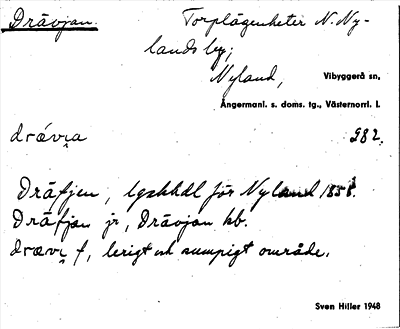 Drävjan. Torplägenheter N. Ny-
lands by;
Nyland, Vibyggerå sn,
Ångermanl. s. doms. tg., Västernorrl. l.
982.
Dräfjen, lgskhdl för Nyland 1858.
Dräfjan jr, Drävjan kb.
f, lerigt och sumpigt område.
Sven Hiller 1948